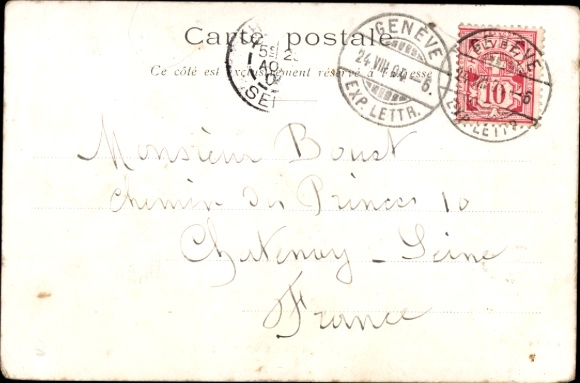 Carte postale
Ce côté est exclusivement réservé à l'adresse
GENÈVE
24 VIII
EXP. LETTR.
6
GENÈVE
EXP. LETTR.
6
10
5E
AO
SEI
Monsieur Boust
Chemin des Princes 10
Chatenay - Seine
France